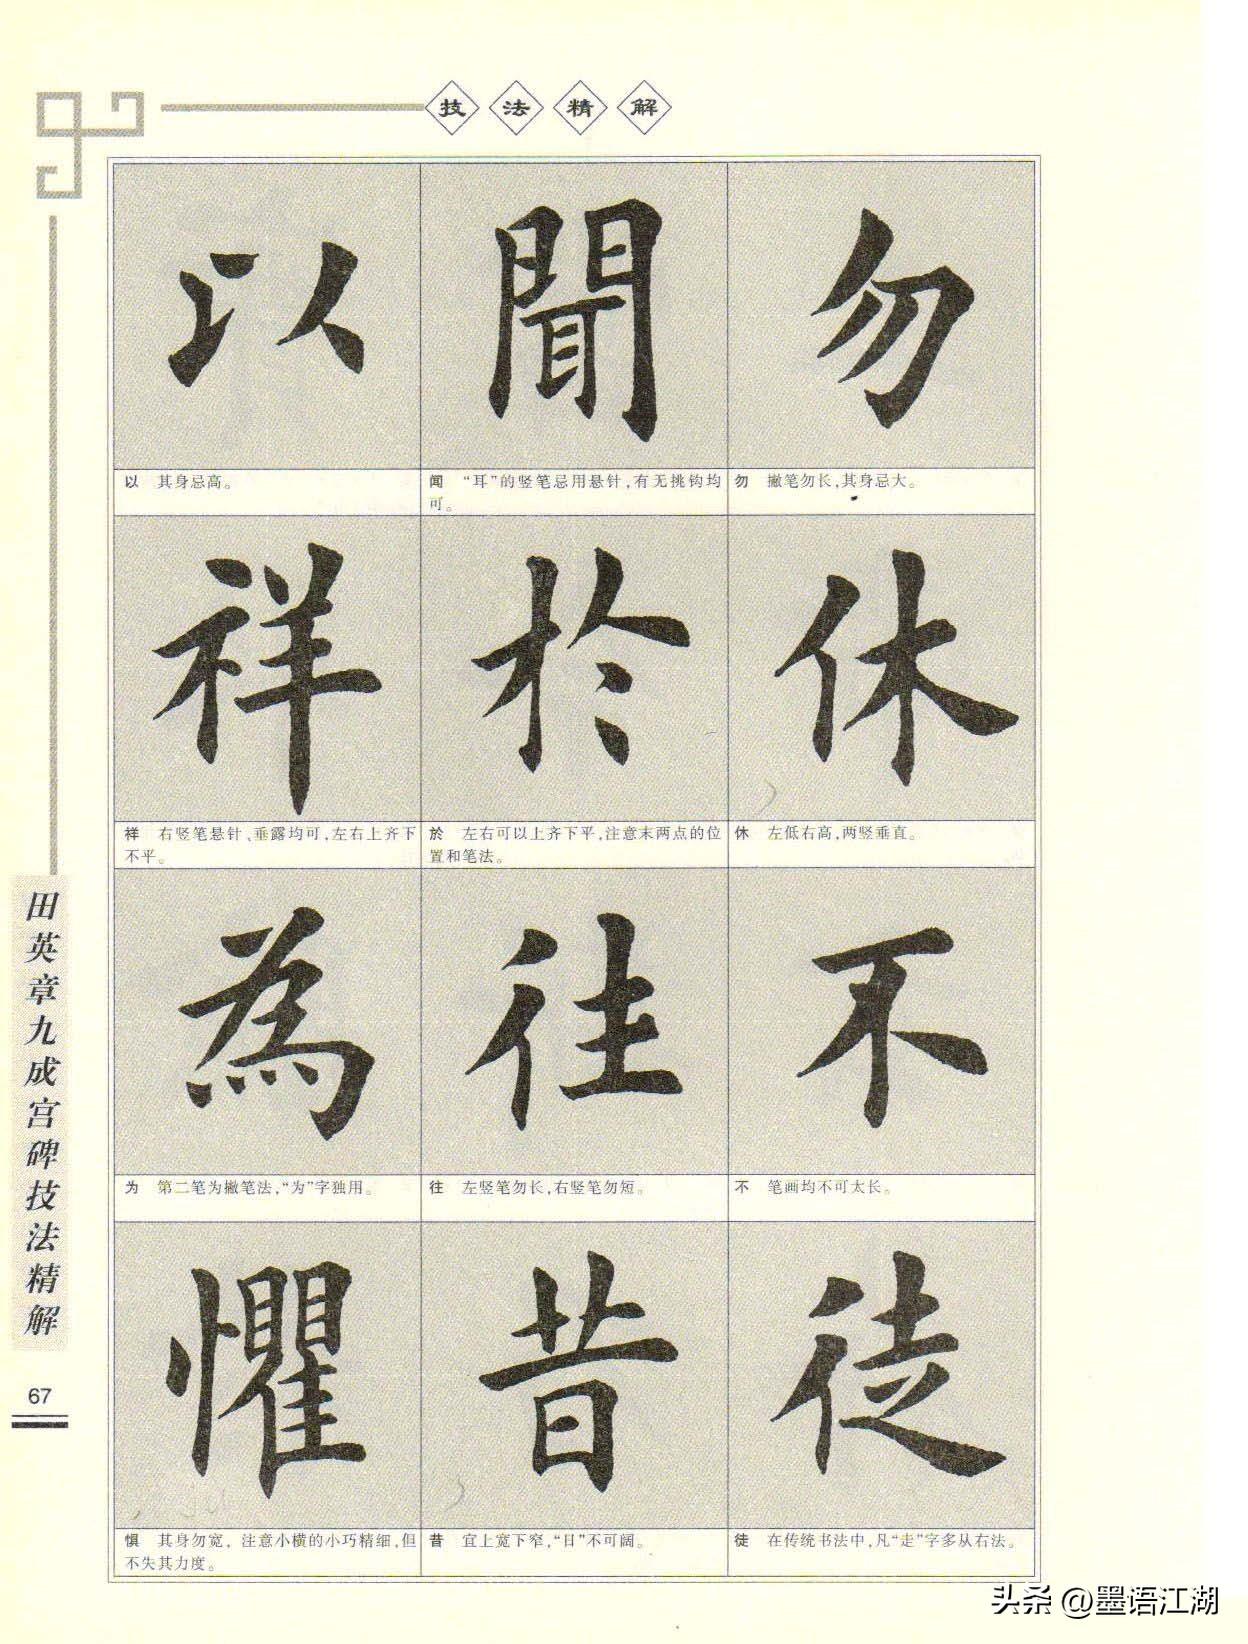 技法精解
以 聞 勿
以 其身忌高。
闻 “耳”的竖笔忌用悬针,有无挑钩均
可。
勿 撇笔勿长,其身忌大。
祥 於 休
祥 右竖笔悬针、垂露均可,左右上齐下
不平。
於 左右可以上齐下平,注意末两点的位
置和笔法。
休 左低右高,两竖垂直。
為 往 不
为 第二笔为撇笔法,“为”字独用。
往 左竖笔勿长,右竖笔勿短。
不 笔画均不可太长。
懼 昔 徒
惧 其身勿宽,注意小横的小巧精细,但
不失其力度。
昔 宜上宽下窄,“日”不可阔。
徒 在传统书法中,凡“走”字多从右法。
田英章九成宫碑技法精解
67
头条 @墨语江湖